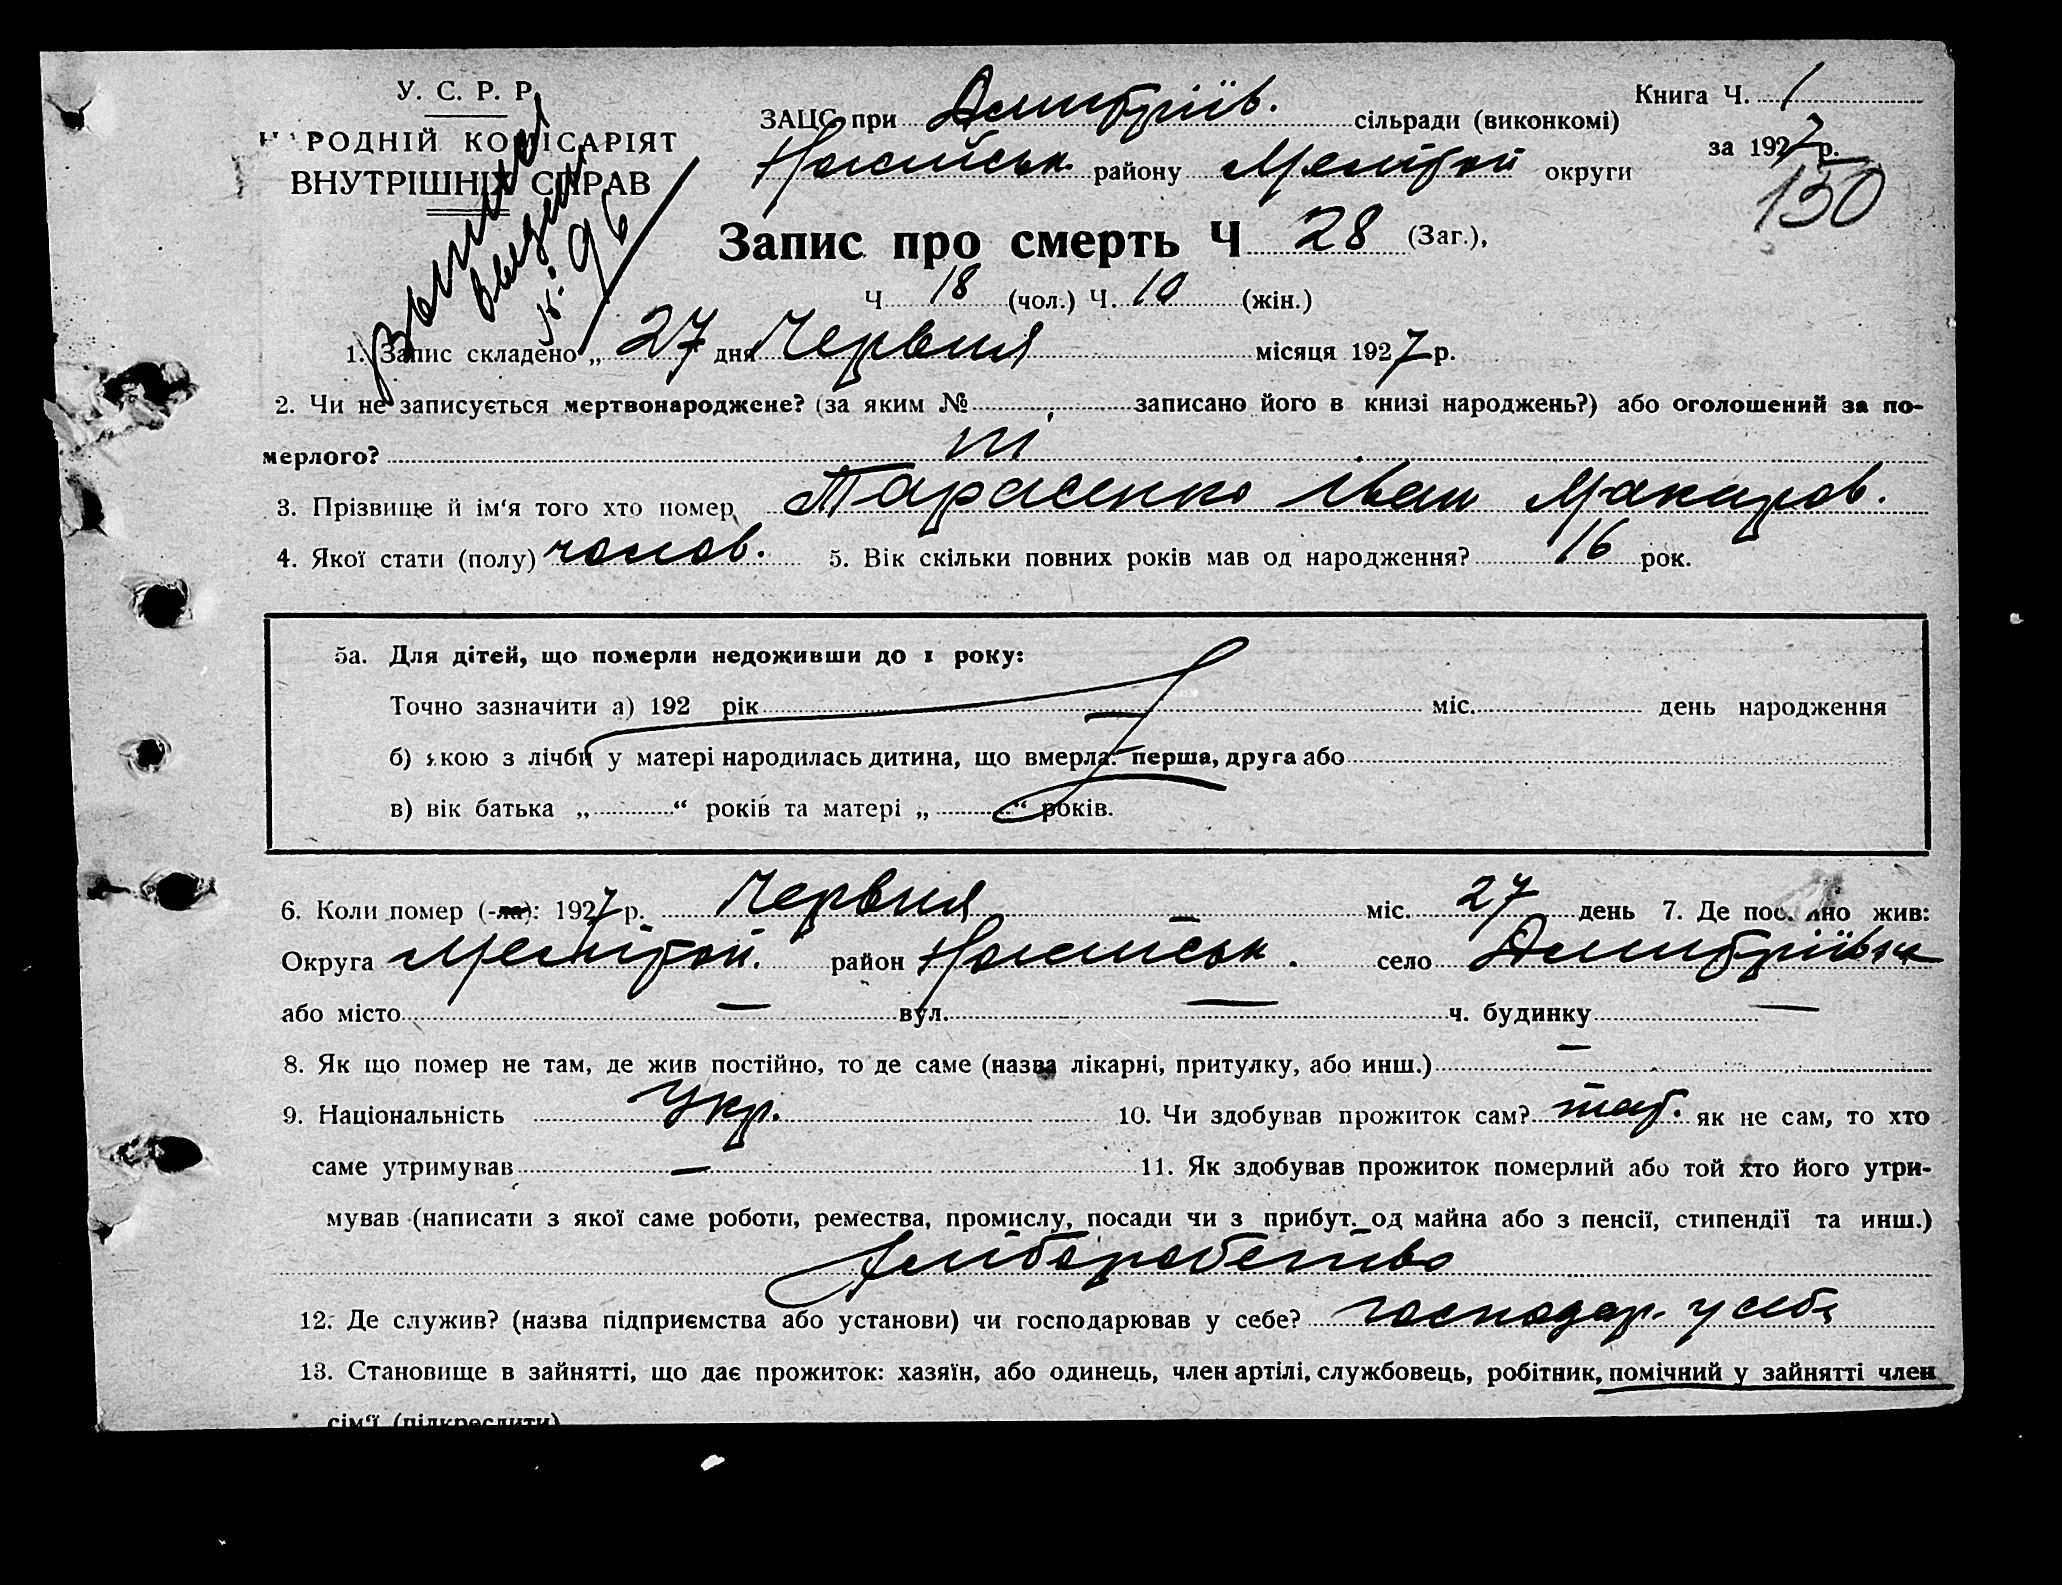 У. С. Р. Р.
НАРОДНІЙ КОМІСАРІЯТ
ВНУТРІШНІХ СПРАВ
№ 96
ЗАЦС при Дмитріїв. сільради (виконкомі)
Ногайськ. району Мелітоп округи
Книга Ч. 1
за 1927 р.
150
Запис про смерть Ч 28 (Заг.),
Ч 18 (чол.) Ч. 10 (жін.)
1. Запис складено „ 27 дня Червня місяця 1927 р.
2. Чи не записується мертвонароджене? (за яким № записано його в книзі народжень?) або оголошений за по-
мерлого? ні
3. Прізвище й ім'я того хто помер Тарасенко Іван Макаров.
4. Якої стати (полу) чолов. 5. Вік скільки повних років мав од народження? 16 рок.
5а. Для дітей, що померли недоживши до 1 року:
Точно зазначити а) 192 рік міс. день народження
б) якою з лічби у матері народилась дитина, що вмерла: перша, друга або
в) вік батька „ “ років та матері „ “ років.
6. Коли помер (-ла): 1927 р. Червня — міс. 27 день 7. Де постійно жив:
Округа Мелітоп. район Ногайськ. село Дмитріївка
або місто — вул. — ч. будинку —
8. Як що помер не там, де жив постійно, то де саме (назва лікарні, притулку, або инш.) —
9. Національність Укр. 10. Чи здобував прожиток сам? як не сам, то хто
саме утримував — 11. Як здобував прожиток померлий або той хто його утри-
мував (написати з якої саме роботи, ремества, промислу, посади чи з прибут. од майна або з пенсії, стипендії та инш.)
Хліборобство
12. Де служив? (назва підприємства або установи) чи господарював у себе? господар. у себе
13. Становище в зайнятті, що дає прожиток: хазяїн, або одинець, член артілі, службовець, робітник, помічний у зайнятті член
сім'ї (підкреслити)